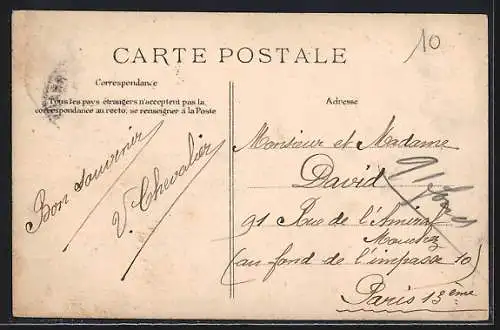 10
CARTE POSTALE
Correspondance
Tous les pays étrangers n'acceptent pas la
correspondance au recto, se renseigner à la Poste
Adresse
Bon souvenir
V. Chevalier
Monsieur et Madame
David
91 Rue de l'Amiral
Mouchez
(au fond de l'impasse 10)
Paris 13ème